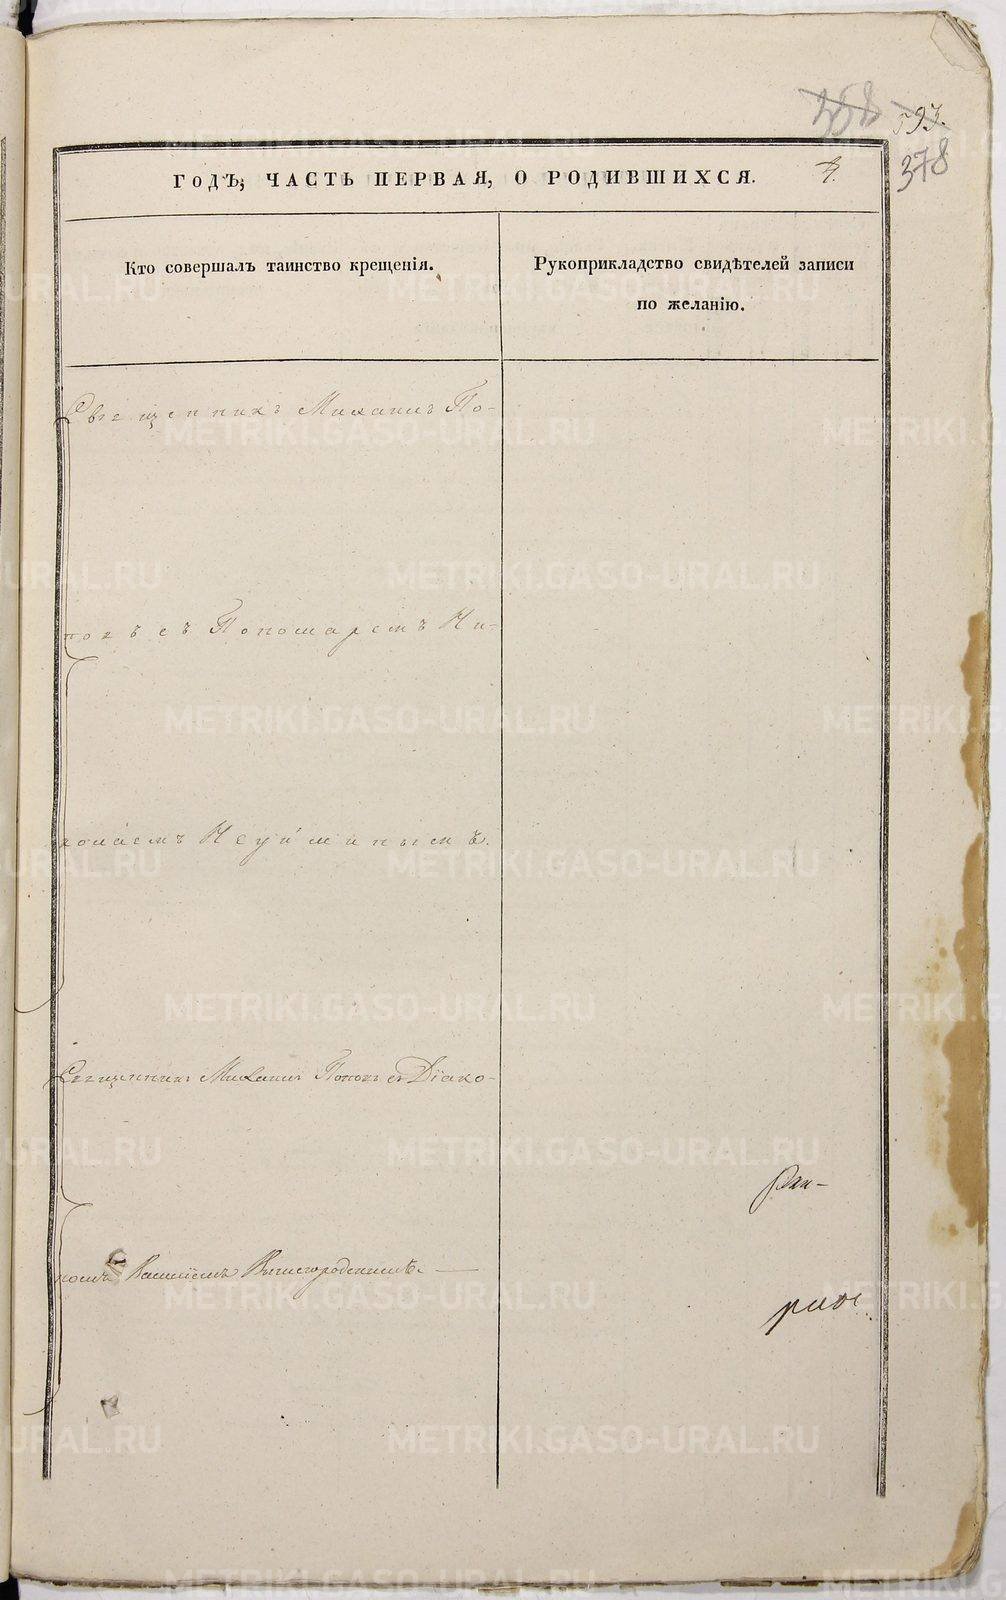 358
593.
378
ГОДЪ, ЧАСТЬ ПЕРВАЯ, О РОДИВШИХСЯ.
Кто совершалъ таинство крещенія.
Рукоприкладство свидѣтелей записи
по желанію.
Священникъ Михаилъ По-
повъ съ Пономаремъ Ни-
колаемъ Неуйминымъ.
Священникъ Михаилъ Поповъ съ Діако-
номъ Василіемъ Вышегородскимъ.
METRIKI.GASO-URAL.RU